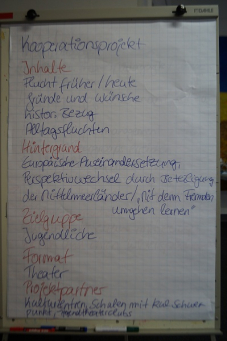 Kooperationsprojekt
Inhalte
Flucht früher / heute
Gründe und Wünsche
histor. Bezug
Alltagsfluchten
Hintergrund
Europäische Auseinandersetzung
Perspektivwechsel durch Beteiligung
der Mittelmeerländer / "Mit dem Fremden
umgehen lernen"
Zielgruppe
Jugendliche
Format
Theater
Projektpartner
Kulturzentren, Schulen mit
punkt, Jugendtheaterclubs